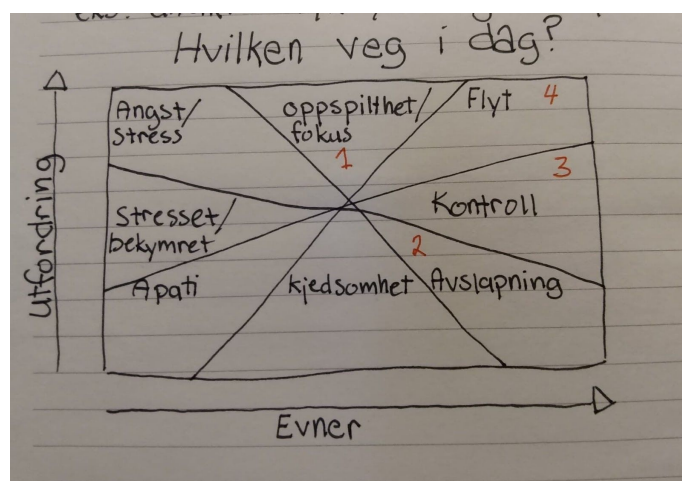 Hvilken veg i dag?
Angst/
stress
oppspilthet/
fokus
Flyt 4
1
3
Kontroll
Stresset/
bekymret
2
Apati
kjedsomhet
Avslapning
Utfordring
Evner